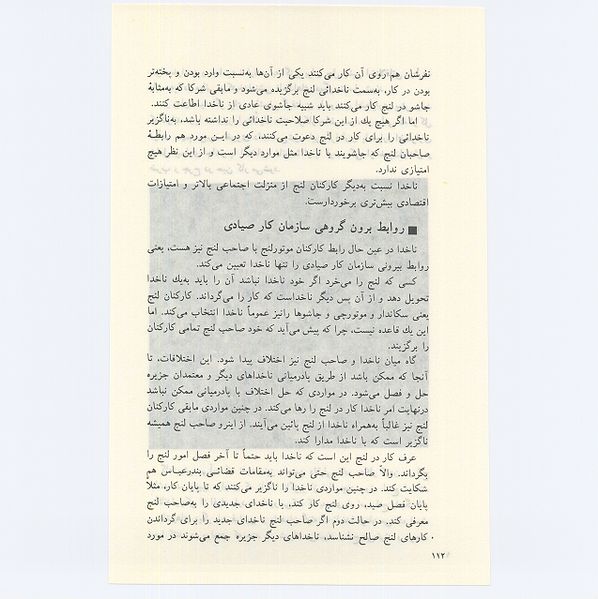 نفرشان هم روی آن کار می‌کنند یکی از آن‌ها به‌نسبت وارد بودن و پخته‌تر
بودن در کار، به‌سمت ناخدائی لنج برگزیده می‌شود و مابقی شرکا که به‌مثابهٔ
جاشو در لنج کار می‌کنند باید شبیه جاشوی عادی از ناخدا اطاعت کنند.
اما اگر هیچ یك از این شرکا صلاحیت ناخدائی را نداشته باشد، به‌ناگزیر
ناخدائی را برای کار در لنج دعوت می‌کنند، که در ایـن مورد هم رابطـهٔ
صاحبان لنج که جاشویند با ناخدا مثل موارد دیگر است و از این نظر هیچ
امتیازی ندارد.
ناخدا نسبت به‌دیگر کارکنان لنج از منزلت اجتماعی بالاتر و امتیازات
اقتصادی بیش‌تری برخوردارست.
■ روابط برون گروهی سازمان کار صیادی
ناخدا در عین حال رابط کارکنان موتورلنج با صاحب لنج نیز هست، یعنی
روابط بیرونی سازمان کار صیادی را تنها ناخدا تعیین می‌کند.
کسی که لنج را می‌خرد اگر خود ناخدا نباشد آن را باید به‌یك ناخدا
تحویل دهد و از آن پس دیگر ناخداست که کار را می‌گرداند. کارکنان لنج
یعنی سکاندار و موتورچی و جاشوها رانیز عموماً ناخدا انتخاب می‌کند. اما
این یك قاعده نیست، چرا که پیش می‌آید که خود صاحب لنج تمامی کارکنان
را برگزیند.
گاه میان ناخدا و صاحب لنج نیز اختلاف پیدا شود. این اختلافات، تا
آنجا که ممکن باشد از طریق پادرمیانی ناخداهای دیگر و معتمدان جزیره
حل و فصل می‌شود. در مواردی که حل اختلاف با پادرمیانی ممکن نباشد
درنهایت امر ناخدا کار در لنج را رها می‌کند. در چنین مواردی مابقی کارکنان
لنج نیز غالباً به‌همراه ناخدا از لنج پائین می‌آیند. از اینرو صاحب لنج همیشه
ناگزیر است که با ناخدا مدارا کند.
عرف کار در لنج این است که ناخدا باید حتماً تا آخر فصل امور لنج را
بگرداند. والّا صاحب لنج حتی می‌تواند به‌مقامات قضائـی بندرعبـاس هم
شکایت کند. در چنین مواردی ناخدا را ناگزیر می‌کنند که تا پایان کار، مثلا
پایان فصل صید، روی لنج کار کند، یا ناخدای جدیدی را به‌صاحب لنج
معرفی کند. در حالت دوم اگر صاحب لنج ناخدای جدید را برای گرداندن
کارهای لنج صالح نشناسد، ناخداهای دیگر جزیره جمع می‌شوند در مورد
۱۱۲